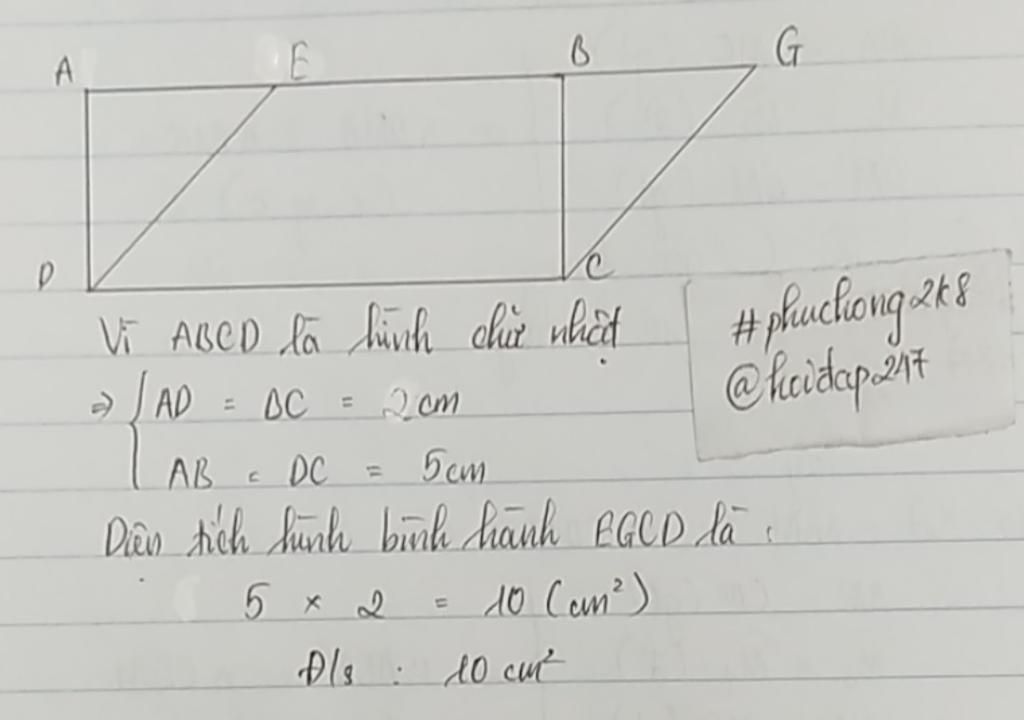 A E B G
D C
Vì ABCD là hình chữ nhật
⇒ { AD = BC = 2cm
AB = DC = 5cm
Diện tích hình bình hành EGCD là :
5 × 2 = 10 (cm²)
Đ/s : 10 cm²
#phuchong2k8
@hoidap247